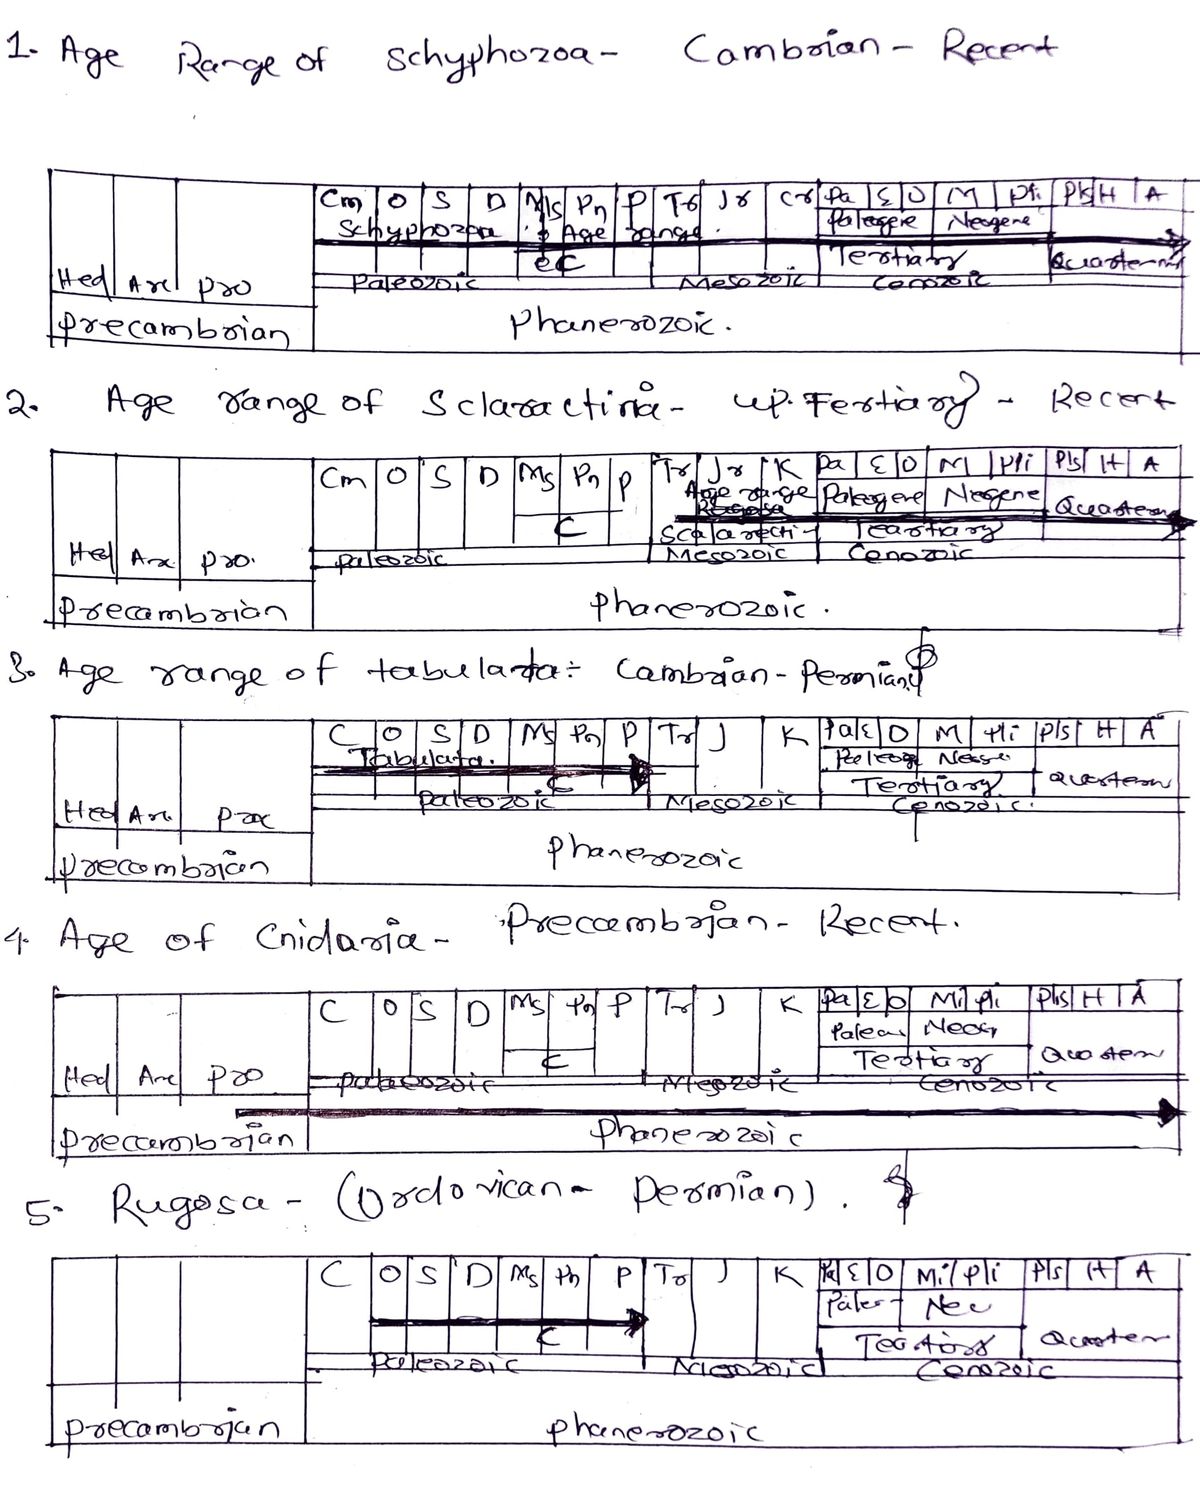 1. Age Range of Schyphozoa - Cambrian - Recent
Cm O S D Ms Pn P Tr Jr Cr Pa E O M Pli Pls H A
Schyphozoa Age range. Paleogene Neogene
C Tertiary Quaternary
Hed Arc Pro Paleozoic Mesozoic Cenozoic
Precambrian Phanerozoic.
2. Age range of Sclaractinia - up. Tertiary - Recent
Cm O S D Ms Pn P Tr Jr K Pa E O M Pli Pls H A
Age range Paleogene Neogene Quatern
C Scalaracti- Teartiary
Hed Arc Pro. Paleozoic Mesozoic Cenozoic
Precambrian Phanerozoic.
3. Age range of tabulata: Cambrian - Permian
C O S D Ms Pn P Tr J K Pa E O M Pli Pls H A
Tabulata. Paleog Neoge
C Tertiary Quatern
Hed Arc Pro Paleozoic Mesozoic Cenozoic.
Precambrian Phanerozoic
4. Age of Cnidaria - Precambrian - Recent.
C O S D Ms Pn P Tr J K Pa E O Mi Pli Pls H A
Neog
C Tertiary Quatern
Hed Arc Pro Palaeozoic Mesozoic Cenozoic
Precambrian Phanerozoic
5. Rugosa - (Ordovican - Permian).
C O S D Ms Pn P Tr J K Pa E O Mi Pli Pls H A
C Quater
Paleozoic Mesozoic Cenozoic
Precambrian Phanerozoic